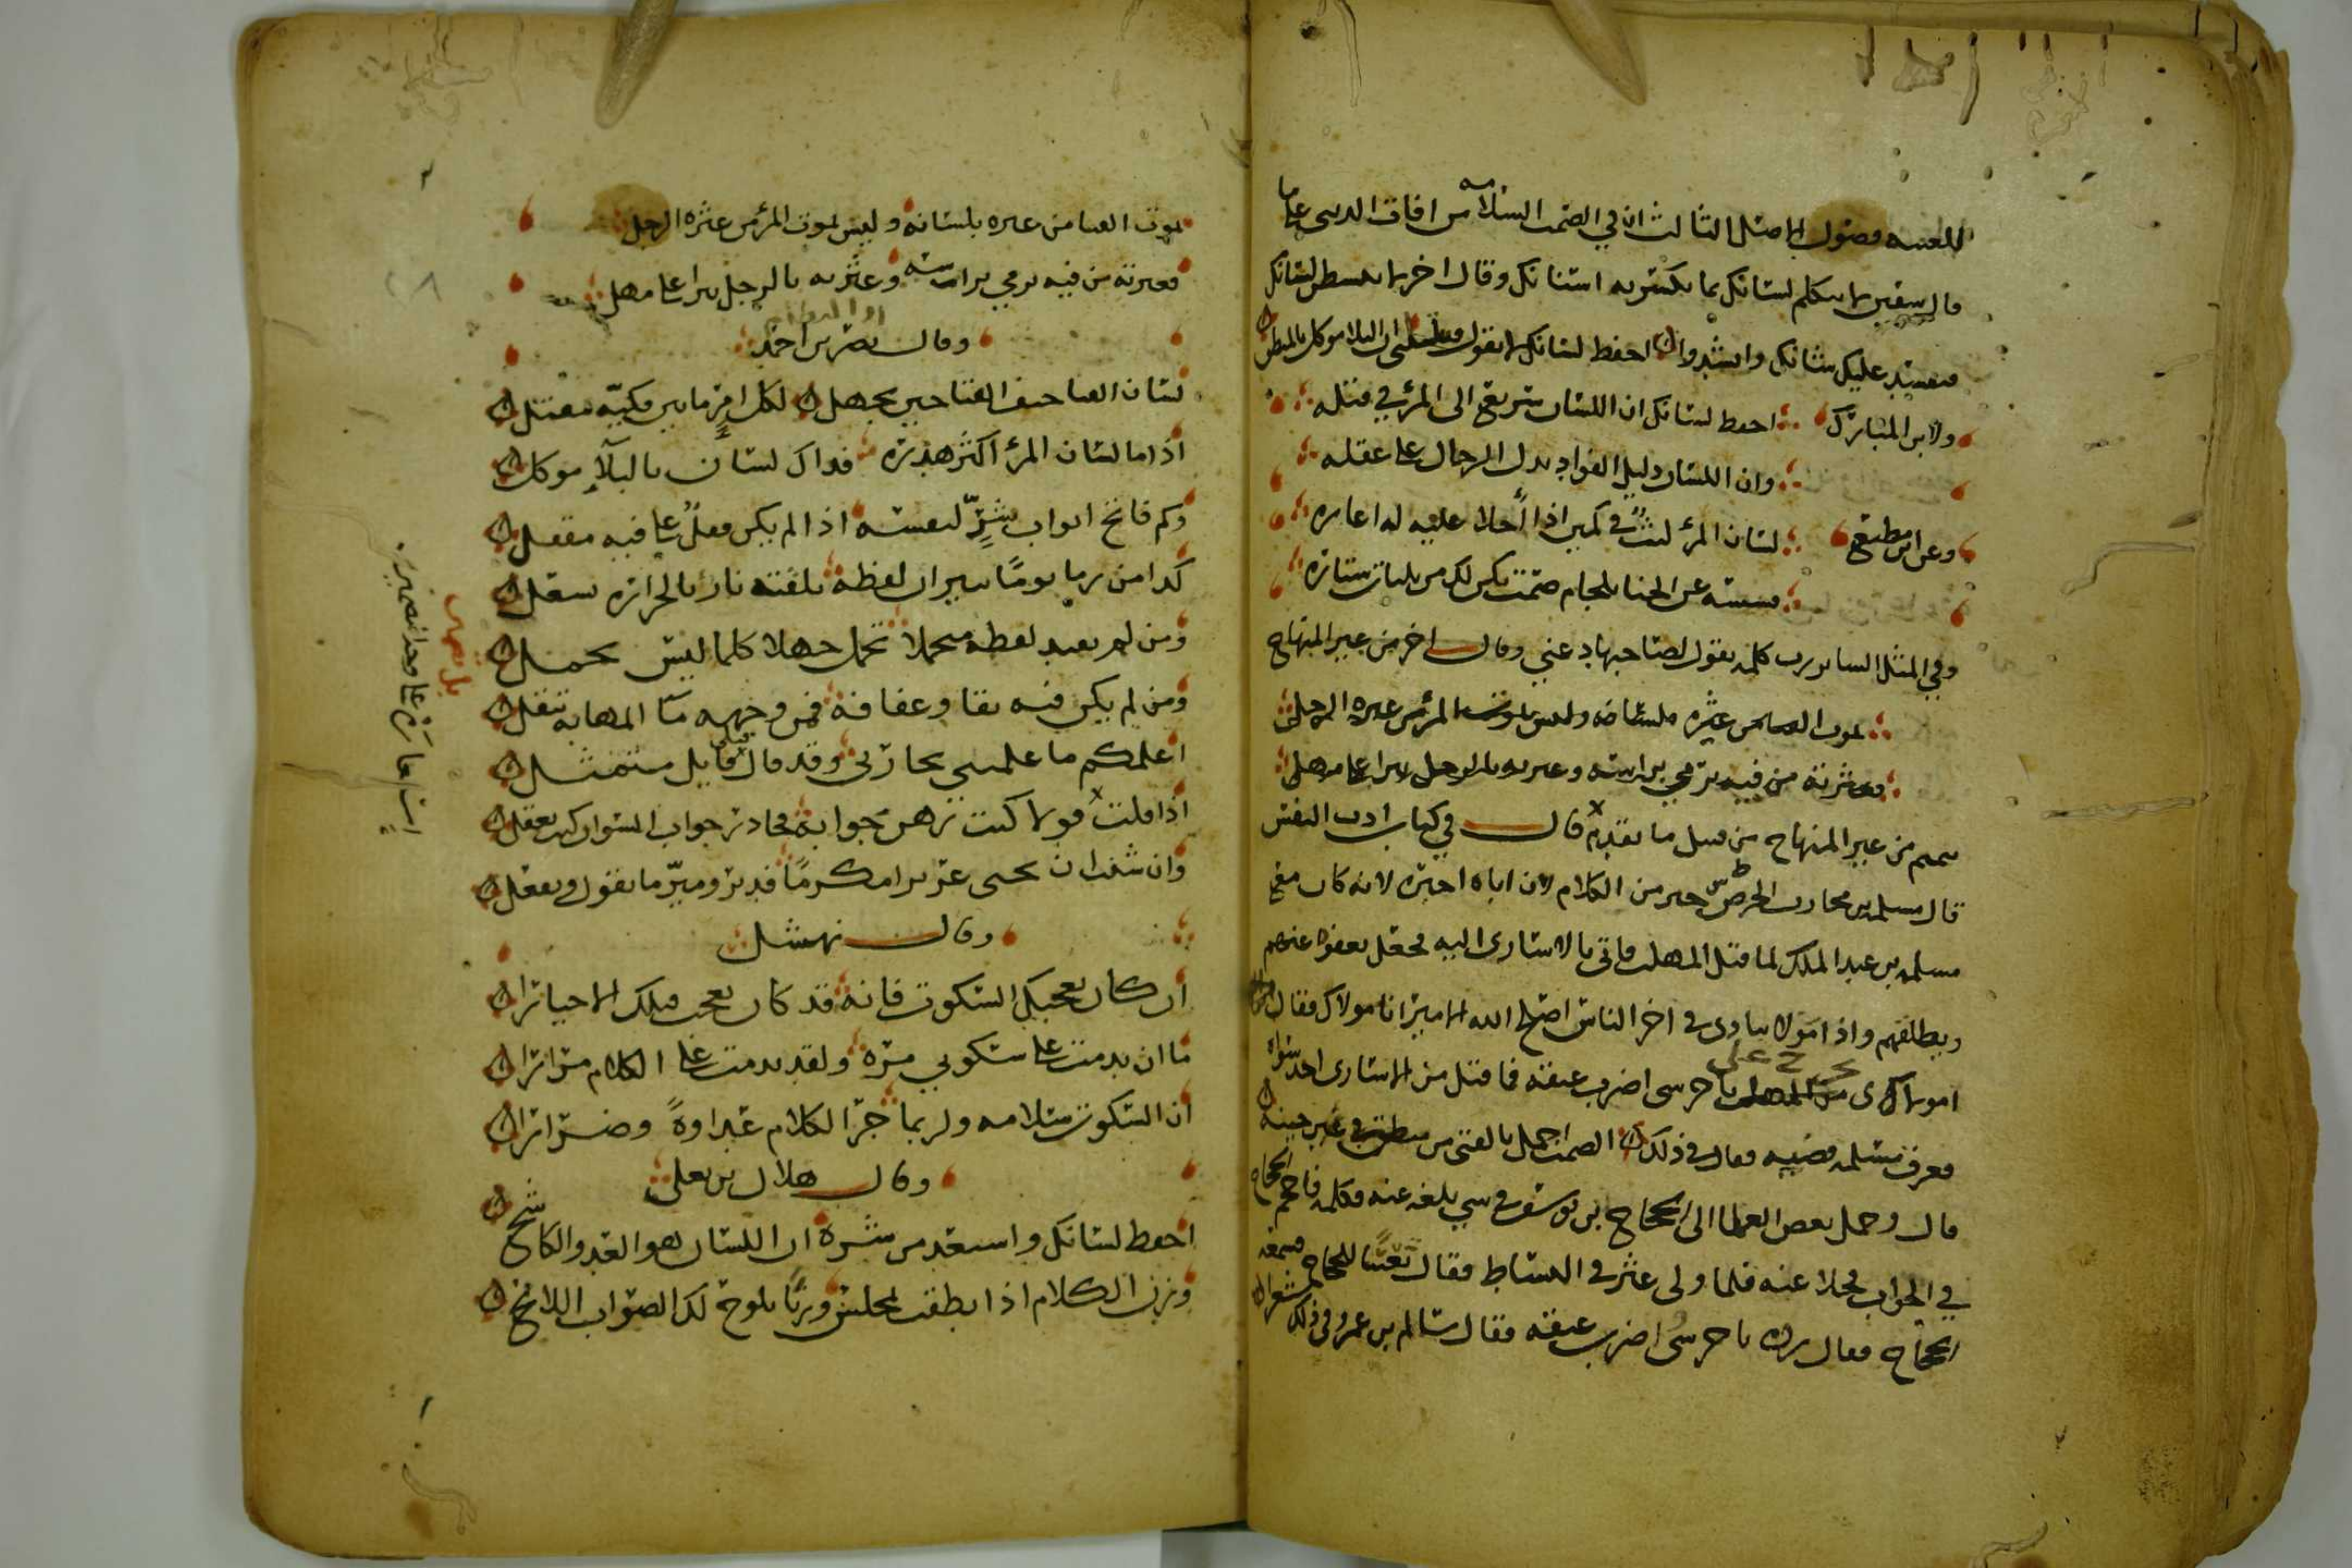 للغيبه فصول الاصل الثالث ان في الصمت السلامه من افات الدنيا
قال سفين لا تتكلم لسانك بما تكسر به اسنانك وقال اخر لا تبسط لسانك
فيفسد عليك شانك وانشدوا احفظ لسانك لا تقول فتبتلى ان البلا موكل بالمنطق
ولابن المبارك احفظ لسانك ان اللسان سريع الى المرء في قتله
وان اللسان دليل الفواد يدل الرجال على عقله
وعن ابن مطيع لسان المرء ليث في كمين اذا خلا عليه له اغاره
عن الخنا بلجام صمت يكن لك من بليات ستاره
وفي المثل الساير رب كلمه تقول لصاحبها دعني وقال اخر من غير المنهاج
يموت الفتى من عثره بلسانه وليس يموت المرء من عثره الرجل
فعثرته من فيه ترمي براسه وعثرته بالرجل تبرا على مهل
من غير المنهاج من قبل ما تقدم قال في كتاب ادب النفس
قال مسلمه بن محارب الخرس خير من الكلام لان اباه اخبره لانه كان مع
مسلمه بن عبد الملك لما قتل المهلب فاتى بالاسارى اليه فجعل يعفوا عنهم
ويطلقهم واذا مولا ينادي في اخر الناس اصلح الله الامير انا مولاك فقال
يا حرسي اضرب عنقه فما قتل من الاسارى احد سواه
فعرف مسلمه قضيته فقال في ذلك الصمت اجمل بالفتى من منطق في غير حينه
قال وحمل بعض العلما الى الحجاج بن يوسف في شي بلغه عنه فكلمه فافحم الحجاج
في الجواب فخلا عنه فلما ولى عثر في البساط فقال تعسا للحجاج فسمعه
الحجاج فقال ردوه يا حرسي اضرب عنقه فقال سالم بن عمرو في ذلك شعرا
يموت الفتى من عثره بلسانه وليس يموت المرء من عثره الرجل
فعثرته من فيه ترمي براسه وعثرته بالرجل تبرا على مهل
وقال نصر بن احمد
لسان الفتى حتف الفتى حين يجهل لكل امرء ما بين فكيه مقتل
اذا ما لسان المرء اكثر هذره فذاك لسان بالبلاء موكل
وكم فاتح ابواب شر لنفسه اذا لم يكن قفل على فيه مقفل
كذا من رما يوما شرارات لفظه تلقته نار بالحراره تشعل
ومن لم يقيد لفظه متجملا تحمل جهلا كلما ليس يحمل
ومن لم يكن فيه تقا وعفافة فمن وجهه ماء المهابه تنقل
اعلمكم ما علمتني تجاربي وقد قال قبلي قايل متمثل
اذا قلت قولا كنت رهن جوابه فحاذر جواب السو ان كنت تعقل
وان شئت ان تحيى عزيزا مكرما فدبر وميز ما تقول وتفعل
وقال نهشل
ان كان يعجبك السكوت فانه قد كان يعجب قبلك الاخيارا
ما ان ندمت على سكوتي مره ولقد ندمت على الكلام مرارا
ان السكوت سلامه ولربما جر الكلام عداوة وضرارا
وقال هلال بن يعلى
احفظ لسانك واستعذ من شره ان اللسان هو العدو الكاشح
وزن الكلام اذا نطقت لمجلس وزنا يلوح لك الصواب اللايح